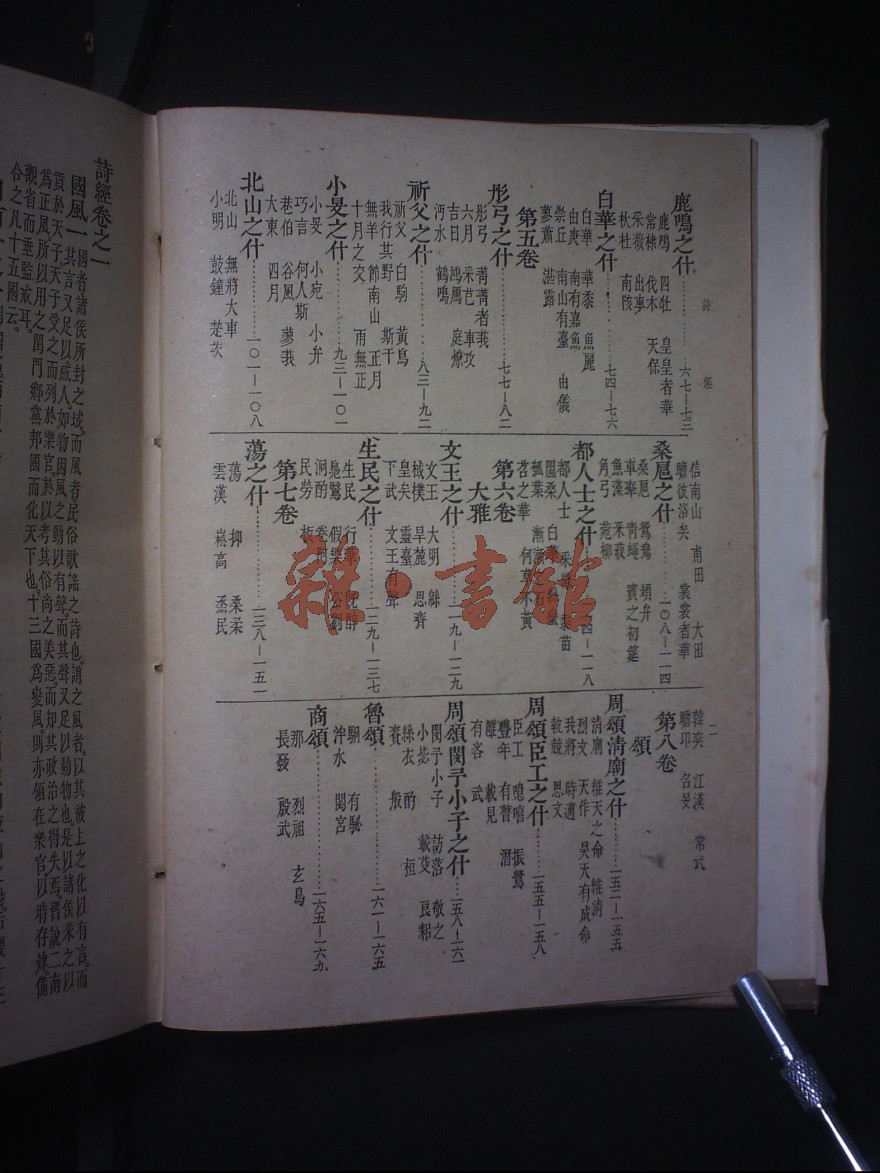 詩 經
二
鹿鳴之什……六七—七三
鹿鳴 四牡 皇皇者華
常棣 伐木 天保
采薇 出車
杕杜 南陔
白華之什……七四—七六
白華 華黍 魚麗
由庚 南有嘉魚
崇丘 南山有臺 由儀
蓼蕭 湛露
第五卷
彤弓之什……七七—八二
彤弓 菁菁者莪
六月 采芑 車攻
吉日 鴻鴈 庭燎
沔水 鶴鳴
祈父之什……八三—九二
祈父 白駒 黃鳥
我行其野 斯干
無羊 節南山 正月
十月之交 雨無正
小旻之什……九三—一〇一
小旻 小宛 小弁
巧言 何人斯
巷伯 谷風 蓼莪
大東 四月
北山之什……一〇一—一〇八
北山 無將大車
小明 鼓鐘 楚茨
信南山 甫田 大田
瞻彼洛矣 裳裳者華
桑扈之什……一〇八—一一四
桑扈 鴛鴦 頍弁
車舝 青蠅 賓之初筵
魚藻 采菽
角弓 菀柳
都人士之什……四—一一八
都人士 采 黍苗
隰桑 白華
瓠葉 漸漸之石
苕之華 何草不黃
第六卷
大雅
文王之什……一一九—一二九
文王 大明 緜
棫樸 旱麓 思齊
皇矣 靈臺
下武 文王有聲
生民之什……一二九—一三七
生民 行葦 既醉
鳧鷖 假樂 公劉
泂酌 卷阿
民勞 板
第七卷
蕩之什……一三八—一五一
蕩 抑 桑柔
雲漢 崧高 烝民
韓奕 江漢 常武
瞻卬 召旻
第八卷
頌
周頌清廟之什……一五二—一五五
清廟 維天之命 維清
烈文 天作 昊天有成命
我將 時邁
執競 思文
周頌臣工之什……一五五—一五八
臣工 噫嘻 振鷺
豐年 有瞽 潛
雝 載見
有客 武
周頌閔予小子之什……一五八—一六一
閔予小子 訪落 敬之
小毖 載芟 良耜
絲衣 酌 桓
賚 般
魯頌……一六一—一六五
駉 有駜
泮水 閟宮
商頌……一六五—一六九
那 烈祖 玄鳥
長發 殷武
詩經卷之一
國風一 國者諸侯所封之域，而風者民俗歌謠之詩也。謂之風者，以其被上之化以有言，而
其言又足以感人，如物因風之動以有聲，而其聲又足以動物也。是以諸侯采之以
貢於天子，天子受之而列於樂官，於以考其俗尚之美惡，而知其政治之得失焉。舊說二南
爲正風，所以用之閨門鄉黨邦國而化天下也。十三國爲變風，則亦領在樂官，以時存肄，備
觀省而垂監戒耳。
合之凡十五國云。
雜·書館